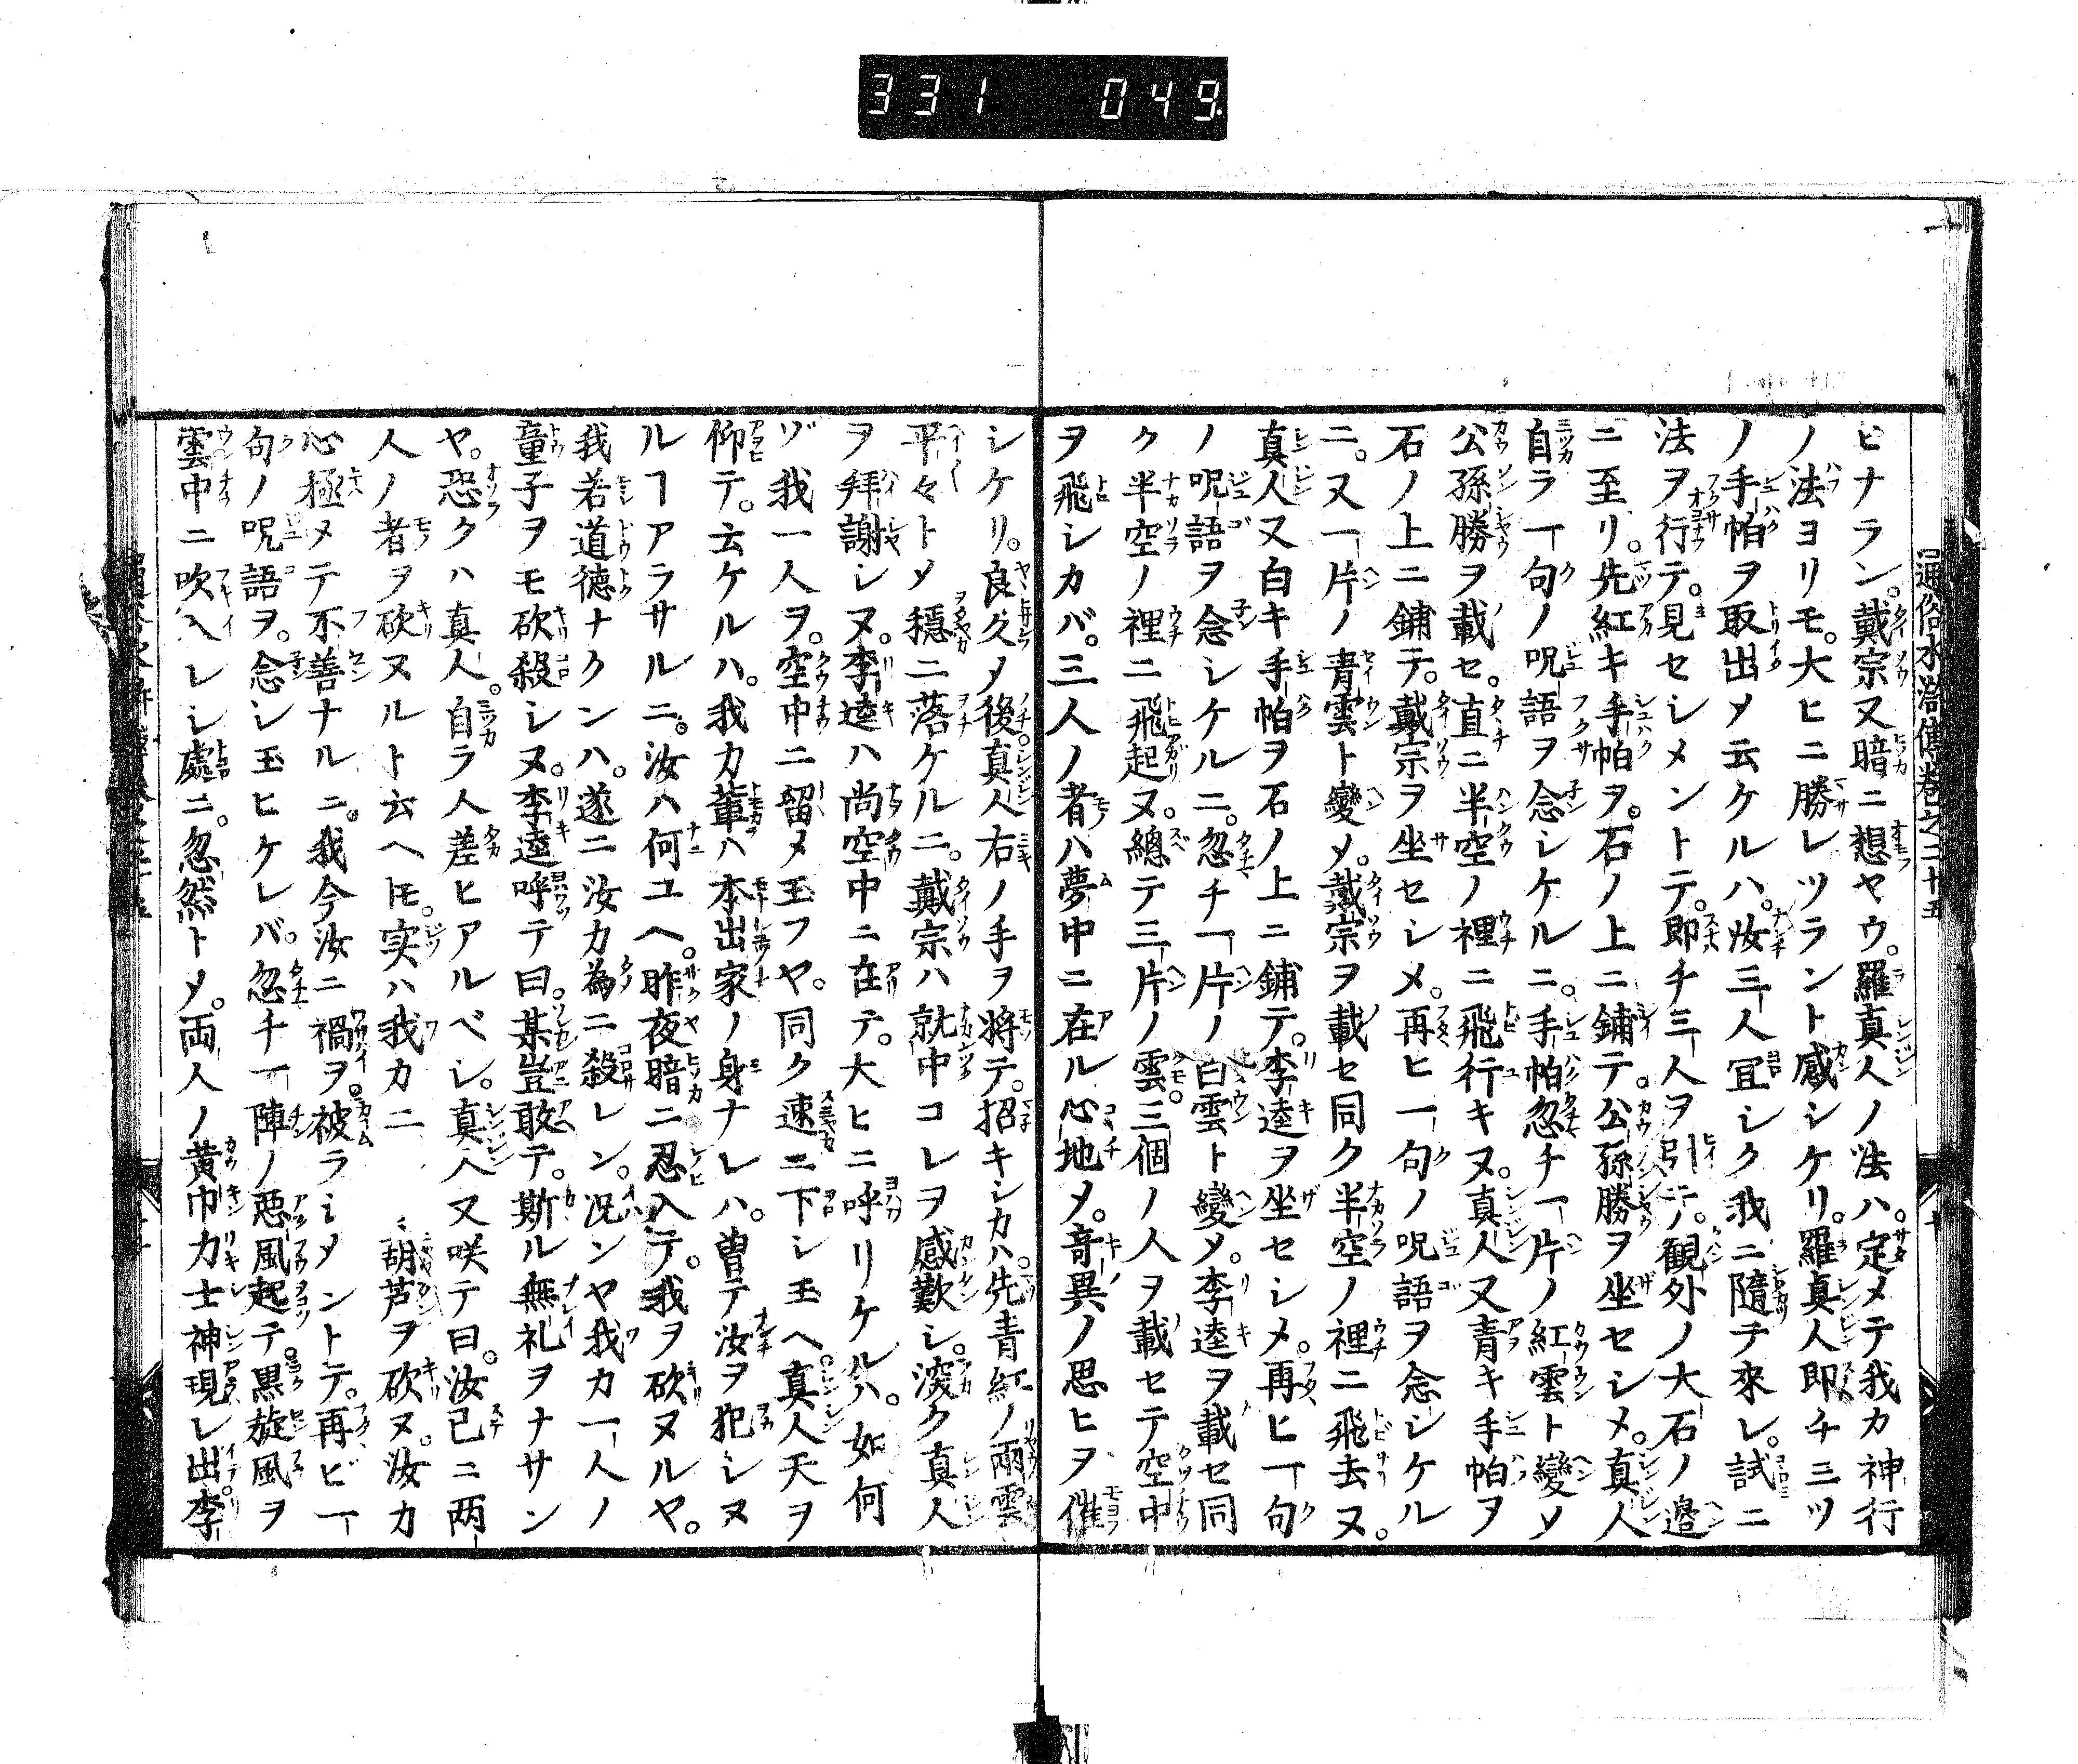 331 049
通俗水滸傳卷之二十五
ヒナラン。戴宗又暗ニ想ヤウ。羅真人ノ法ハ。定メテ我カ神行
ノ法ヨリモ。大ヒニ勝レツラント感シケリ。羅真人即チ三ツ
ノ手帕ヲ取出メ云ケルハ。汝三人冝シク我ニ隨テ來レ。試ニ
法ヲ行テ。見セシメントテ。即チ三人ヲ引テ。観外ノ大石ノ邉
ニ至リ。先紅キ手帕ヲ。石ノ上ニ鋪テ。公孫勝ヲ坐セシメ。真人
自ラ一句ノ呪語ヲ念シケルニ。手帕忽チ一片ノ紅雲ト變メ
公孫勝ヲ載セ。直ニ半空ノ裡ニ飛行キヌ。真人又青キ手帕ヲ
石ノ上ニ鋪テ。戴宗ヲ坐セシメ。再ヒ一句ノ呪語ヲ念シケル
ニ。又一片ノ青雲ト變メ。戴宗ヲ載セ同ク半空ノ裡ニ飛去ヌ。
真人又白キ手帕ヲ石ノ上ニ鋪テ。李逵ヲ坐セシメ。再ヒ一句
ノ呪語ヲ念シケルニ。忽チ一片ノ白雲ト變メ。李逵ヲ載セ同
ク半空ノ裡ニ飛起ヌ。總テ三片ノ雲。三個ノ人ヲ載セテ空中
ヲ飛シカバ。三人ノ者ハ夢中ニ在ル心地メ。奇異ノ思ヒヲ催
シケリ。良久メ後真人右ノ手ヲ将テ。招キシカハ。先青紅ノ兩雲
平々トメ穏ニ落ケルニ。戴宗ハ就中コレヲ感歎シ。深ク真人
ヲ拜謝シヌ。李逵ハ尚空中ニ在テ。大ヒニ呼リケルハ。如何
ゾ我一人ヲ。空中ニ留メ玉フヤ。同ク速ニ下シ玉ヘ。真人天ヲ
仰テ。云ケルハ。我カ輩ハ本出家ノ身ナレハ。曽テ汝ヲ犯シヌ
ルヿアラサルニ。汝ハ何ユヘ。昨夜暗ニ忍入テ。我ヲ砍ヌルヤ。
我若道徳ナクンハ。遂ニ汝カ為ニ殺レン。况ンヤ我カ一人ノ
童子ヲモ砍殺シヌ。李逵呼テ曰。某豈敢テ。斯ル無礼ヲナサン
ヤ。恐クハ真人。自ラ人差ヒアルベシ。真人又咲テ曰。汝已ニ两
人ノ者ヲ砍ヌルト云ヘ𪜈。実ハ我カ二胡芦ヲ砍ヌ。汝カ
心極メテ不善ナルニ。我今汝ニ禍ヲ。被ラシメントテ。再ビ一
句ノ呪語ヲ。念シ玉ヒケレバ。忽チ一陣ノ悪風起テ。黒旋風ヲ
雲中ニ吹入レシ處ニ。忽然トメ。両人ノ黄巾力士神現レ出。李